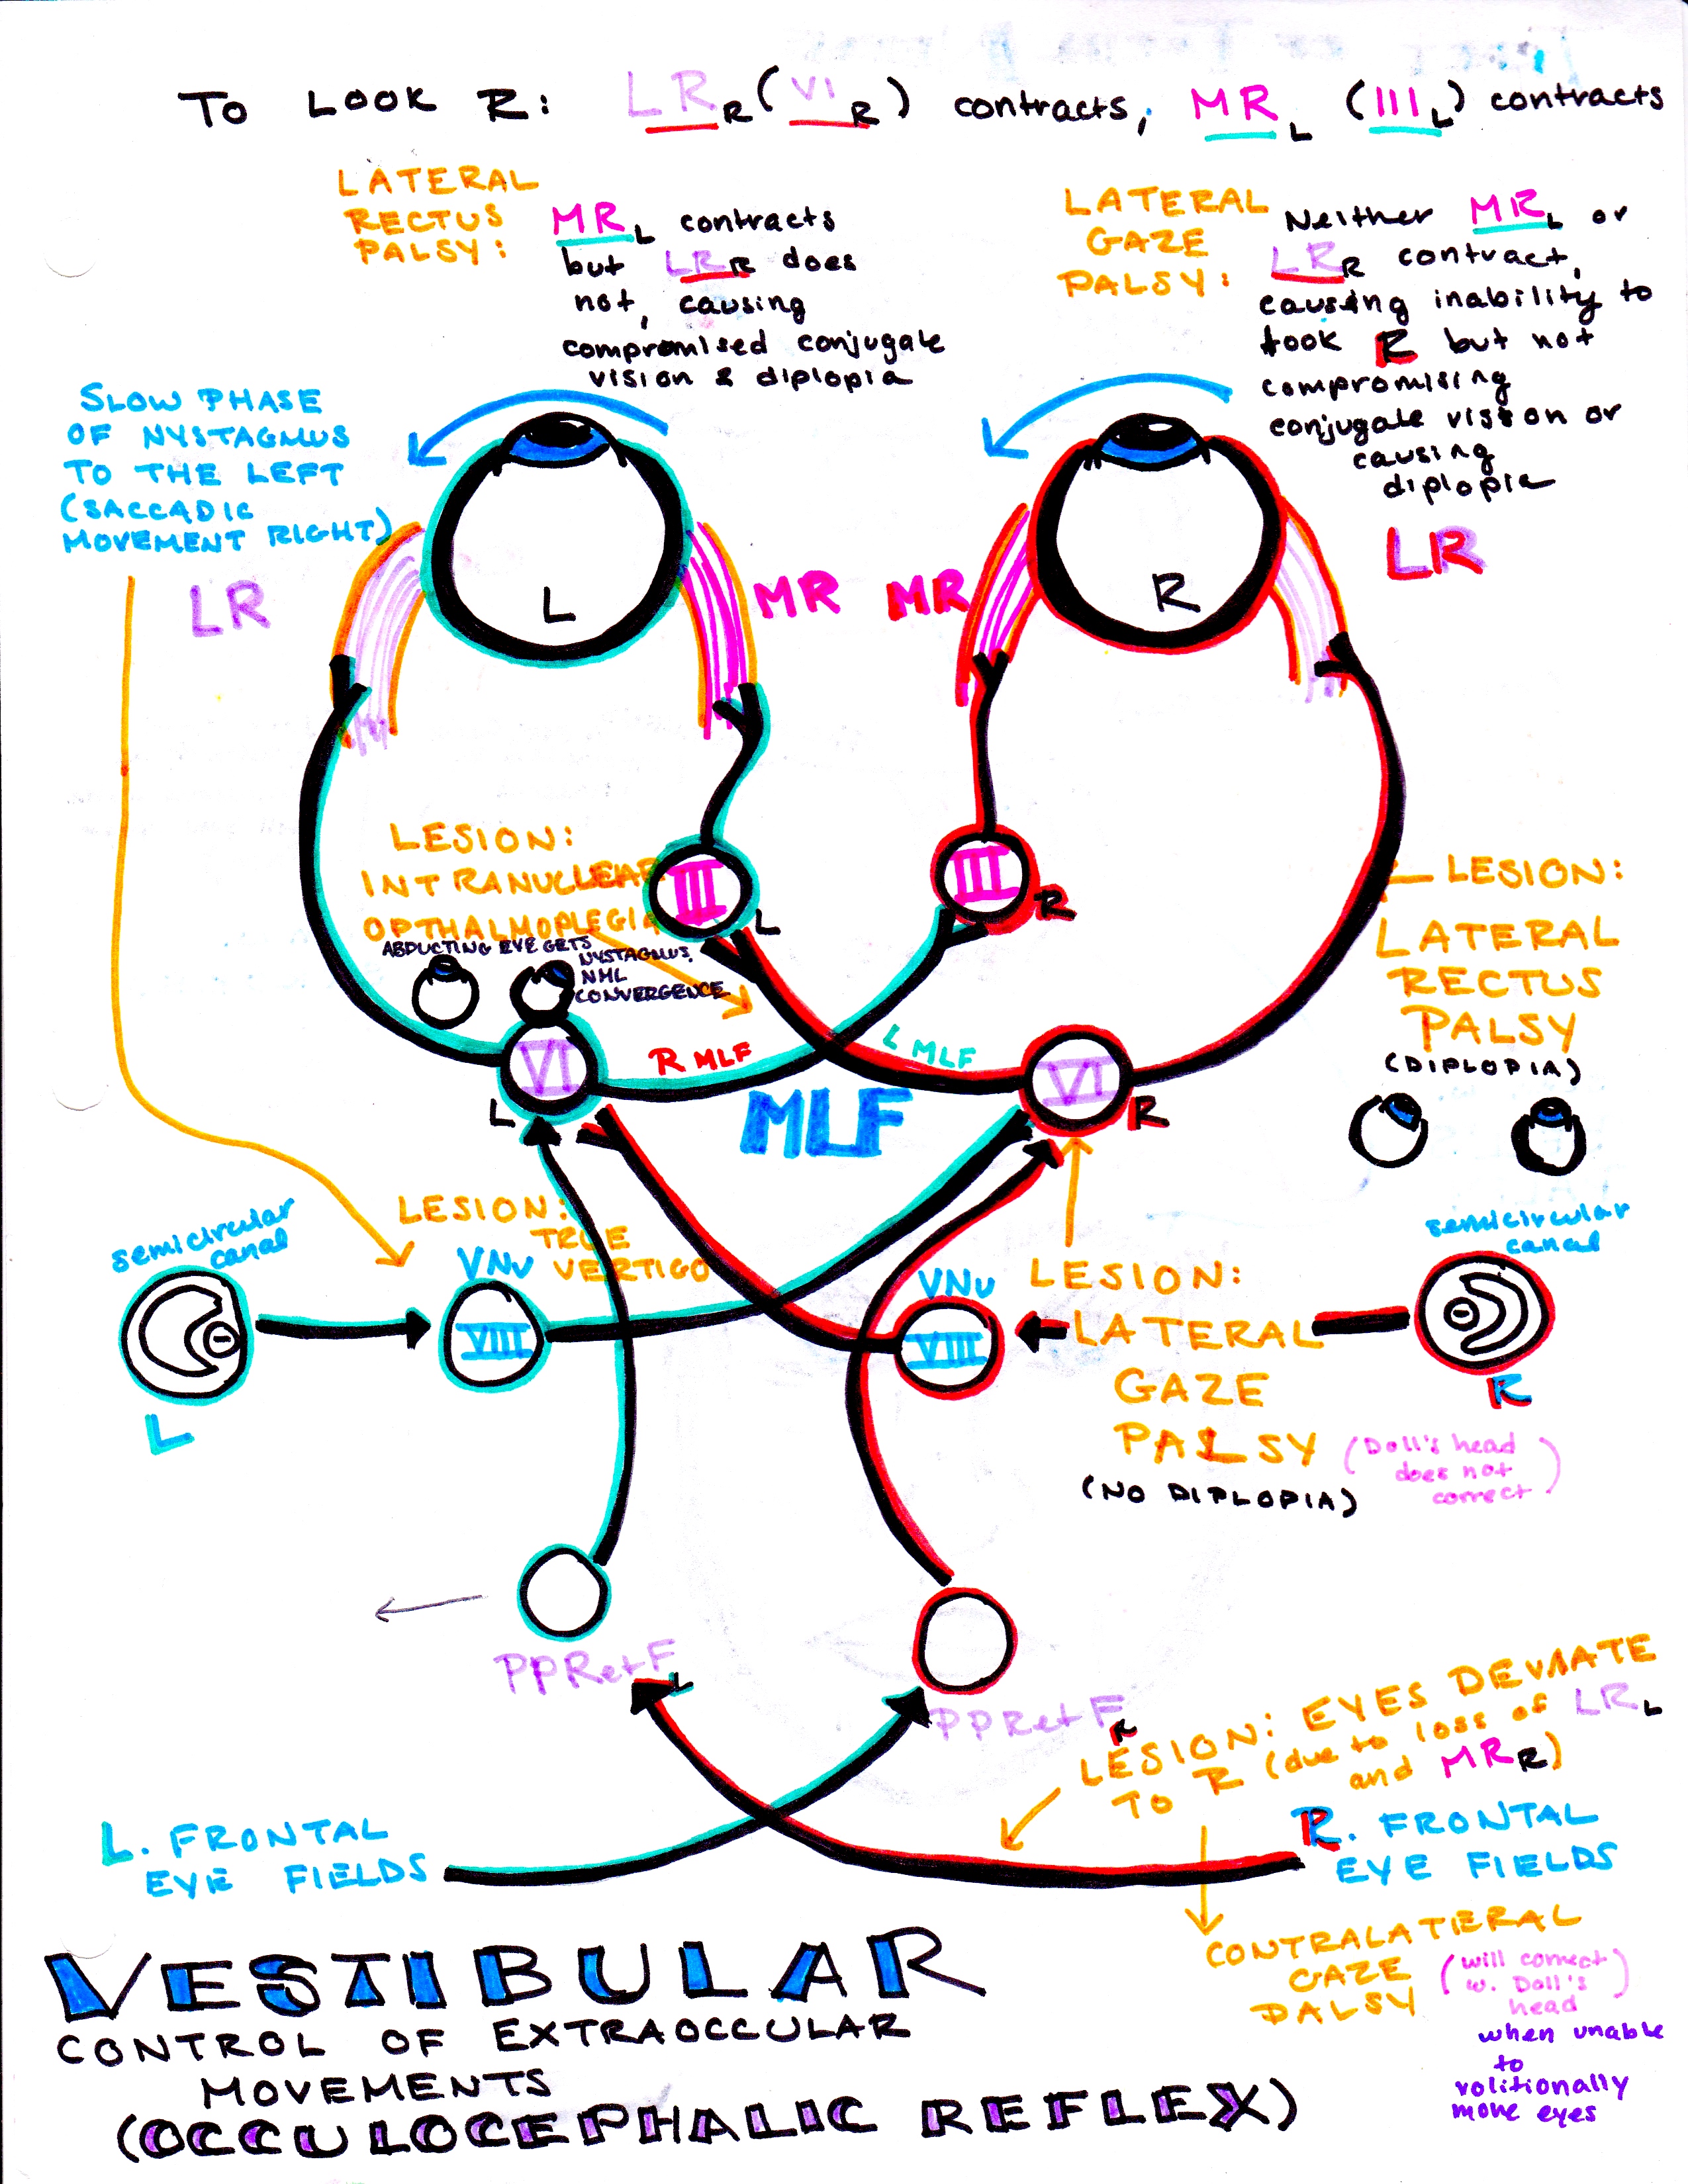 TO LOOK R: LR R (VI R) contracts, MR L (III L) contracts
LATERAL
RECTUS
PALSY:
MR L contracts
but LR R does
not, causing
compromised conjugate
vision & diplopia
LATERAL
GAZE
PALSY:
Neither MR L or
LR R contract,
causing inability to
look R but not
compromising
conjugate vision or
causing
diplopia
SLOW PHASE
OF NYSTAGMUS
TO THE LEFT
(SACCADIC
MOVEMENT RIGHT)
LR
L
MR
MR
R
LR
LESION:
INTRANUCLEAR
OPTHALMOPLEGIA
ABDUCTING EYE GETS
NYSTAGMUS,
NML
CONVERGENCE
III
L
III
R
LESION:
LATERAL
RECTUS
PALSY
(DIPLOPIA)
VI
L
R MLF
L MLF
MLF
VI
R
semicircular
canal
L
LESION:
TRUE
VERTIGO
VNu
VIII
VNu
VIII
LESION:
LATERAL
GAZE
PALSY
(NO DIPLOPIA)
(Doll's head
does not
correct)
semicircular
canal
R
PPRetF
L
PPRetF
R
LESION: EYES DEVIATE
TO R (due to loss of LR L
and MR R)
L. FRONTAL
EYE FIELDS
R. FRONTAL
EYE FIELDS
CONTRALATERAL
GAZE
PALSY
(will correct
w. Doll's
head)
when unable
to
volitionally
move eyes
VESTIBULAR
CONTROL OF EXTRAOCCULAR
MOVEMENTS
(OCCULOCEPHALIC REFLEX)